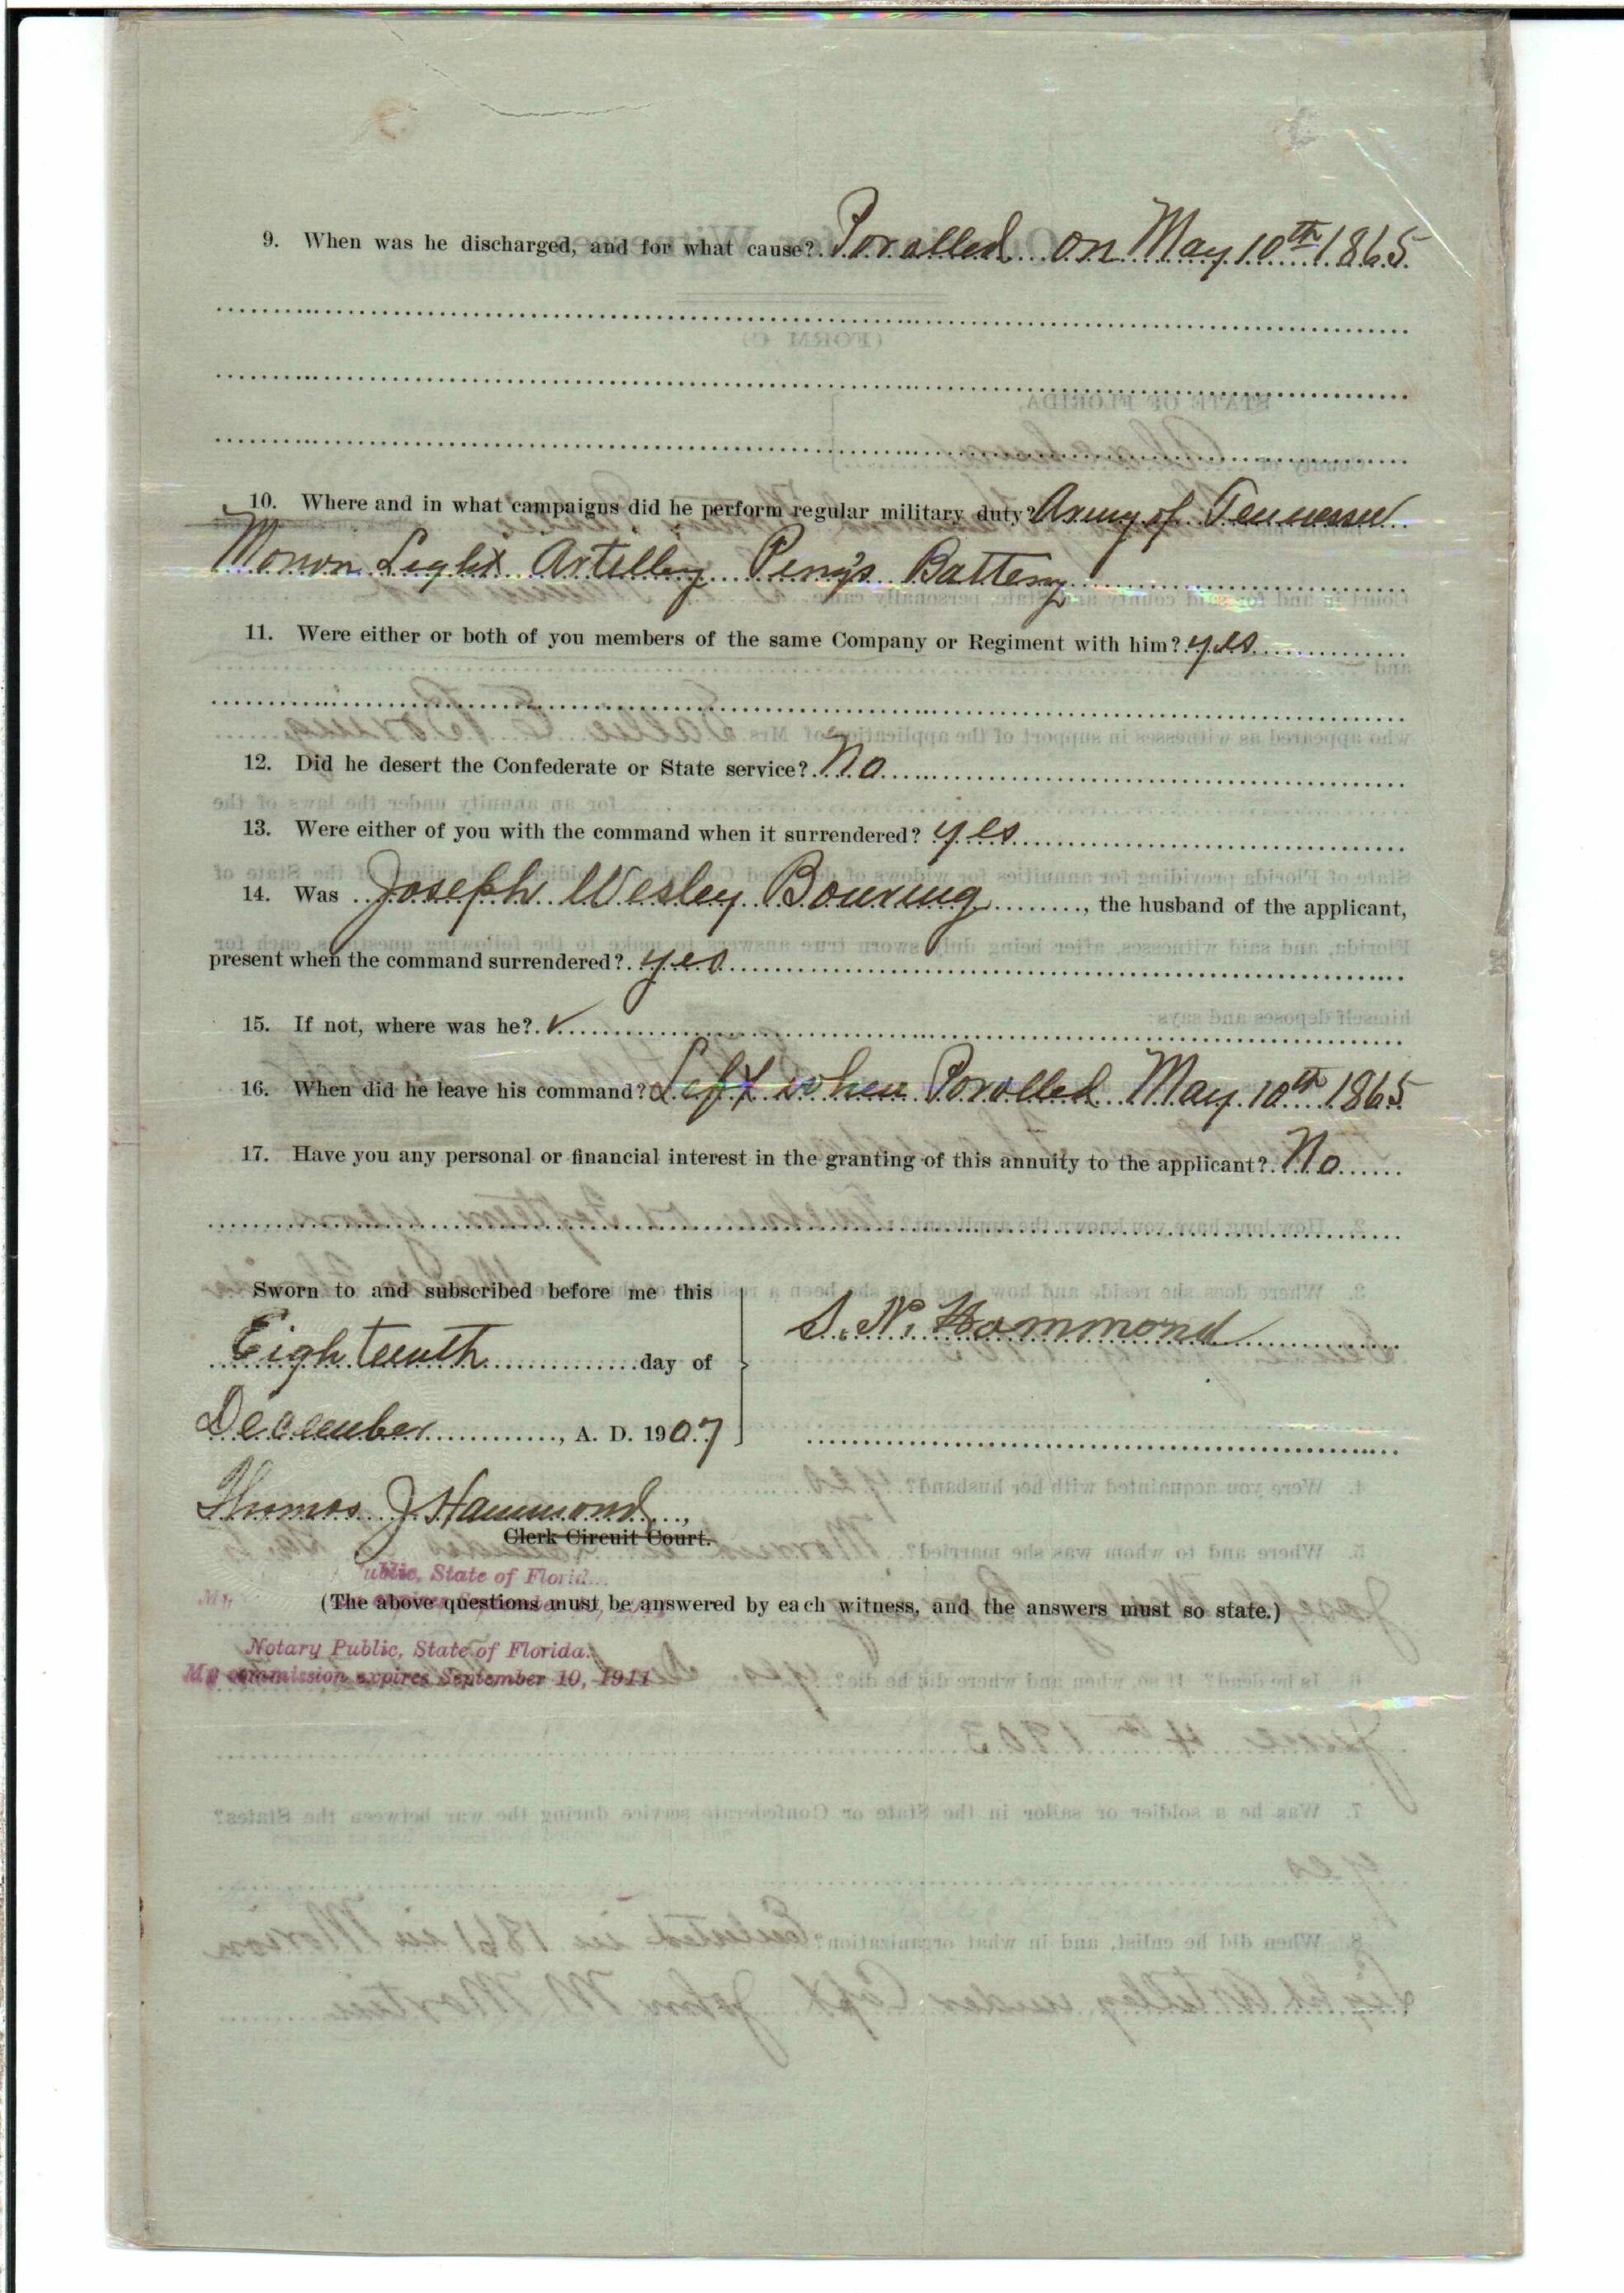 9. When was he discharged, and for what cause? Porolled on May 10th 1865
10. Where and in what campaigns did he perform regular military duty? Army of Tennessee
Morion Light Artillery Perry's Battery
11. Were either or both of you members of the same Company or Regiment with him? yes
12. Did he desert the Confederate or State service? No
13. Were either of you with the command when it surrendered? yes
14. Was Joseph Wesley Bouring, the husband of the applicant,
present when the command surrendered? yes
15. If not, where was he? ✓
16. When did he leave his command? Left when Porolled May 10th 1865
17. Have you any personal or financial interest in the granting of this annuity to the applicant? No
Sworn to and subscribed before me this
Eighteenth day of
December, A. D. 1907
S. N. Hammond
Thomas J Hammond,
Clerk Circuit Court.
ublic, State of Florid
(The above questions must be answered by each witness, and the answers must so state.)
Notary Public, State of Florida.
My commission expires September 10, 1911